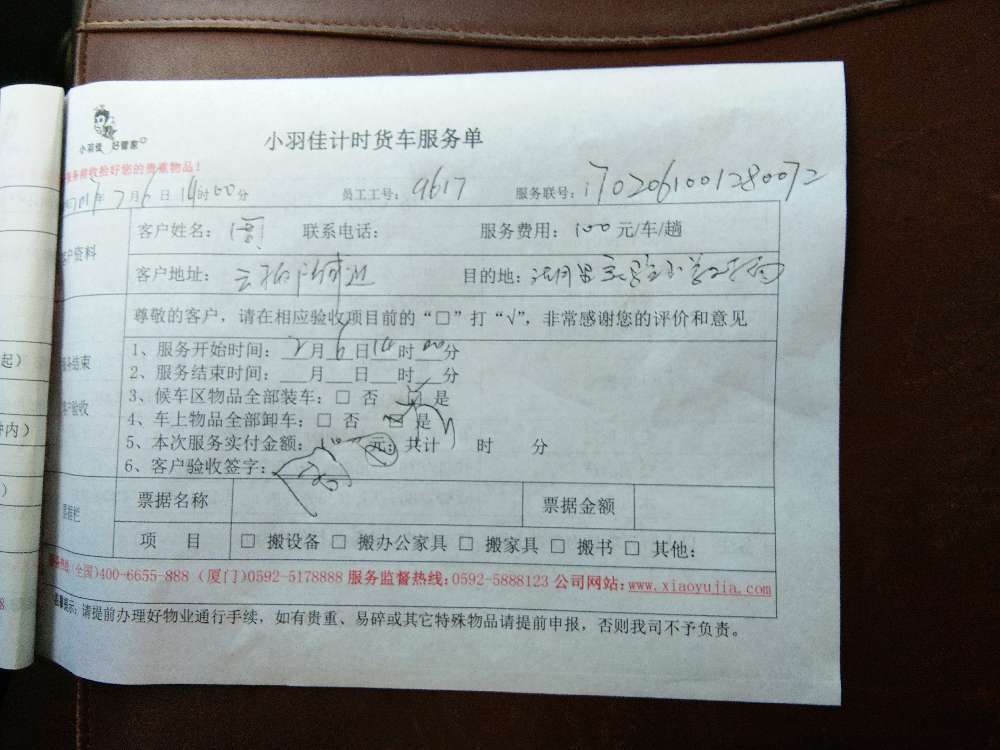 小羽佳 好管家
小羽佳计时货车服务单
收捡好您的贵重物品!
年2月6日14时00分 员工工号: 9617 服务联号: i702061001280072
客户资料
客户姓名: 联系电话: 服务费用: 100元/车/趟
客户地址: 目的地:
尊敬的客户,请在相应验收项目前的“□”打“√”,非常感谢您的评价和意见
服务结束
客户验收
1、服务开始时间: 2月6日14时00分
2、服务结束时间: 月 日 时 分
3、候车区物品全部装车: □ 否 □ 是
4、车上物品全部卸车: □ 否 □ 是
5、本次服务实付金额: 元; 共计 时 分
6、客户验收签字:
票据名称 票据金额
项 目 □ 搬设备 □ 搬办公家具 □ 搬家具 □ 搬书 □ 其他:
(全国)400-6655-888 (厦门)0592-5178888 服务监督热线:0592-5888123 公司网站:www.xiaoyujia.com
提示:请提前办理好物业通行手续,如有贵重、易碎或其它特殊物品请提前申报,否则我司不予负责。
起)
内)
)
8